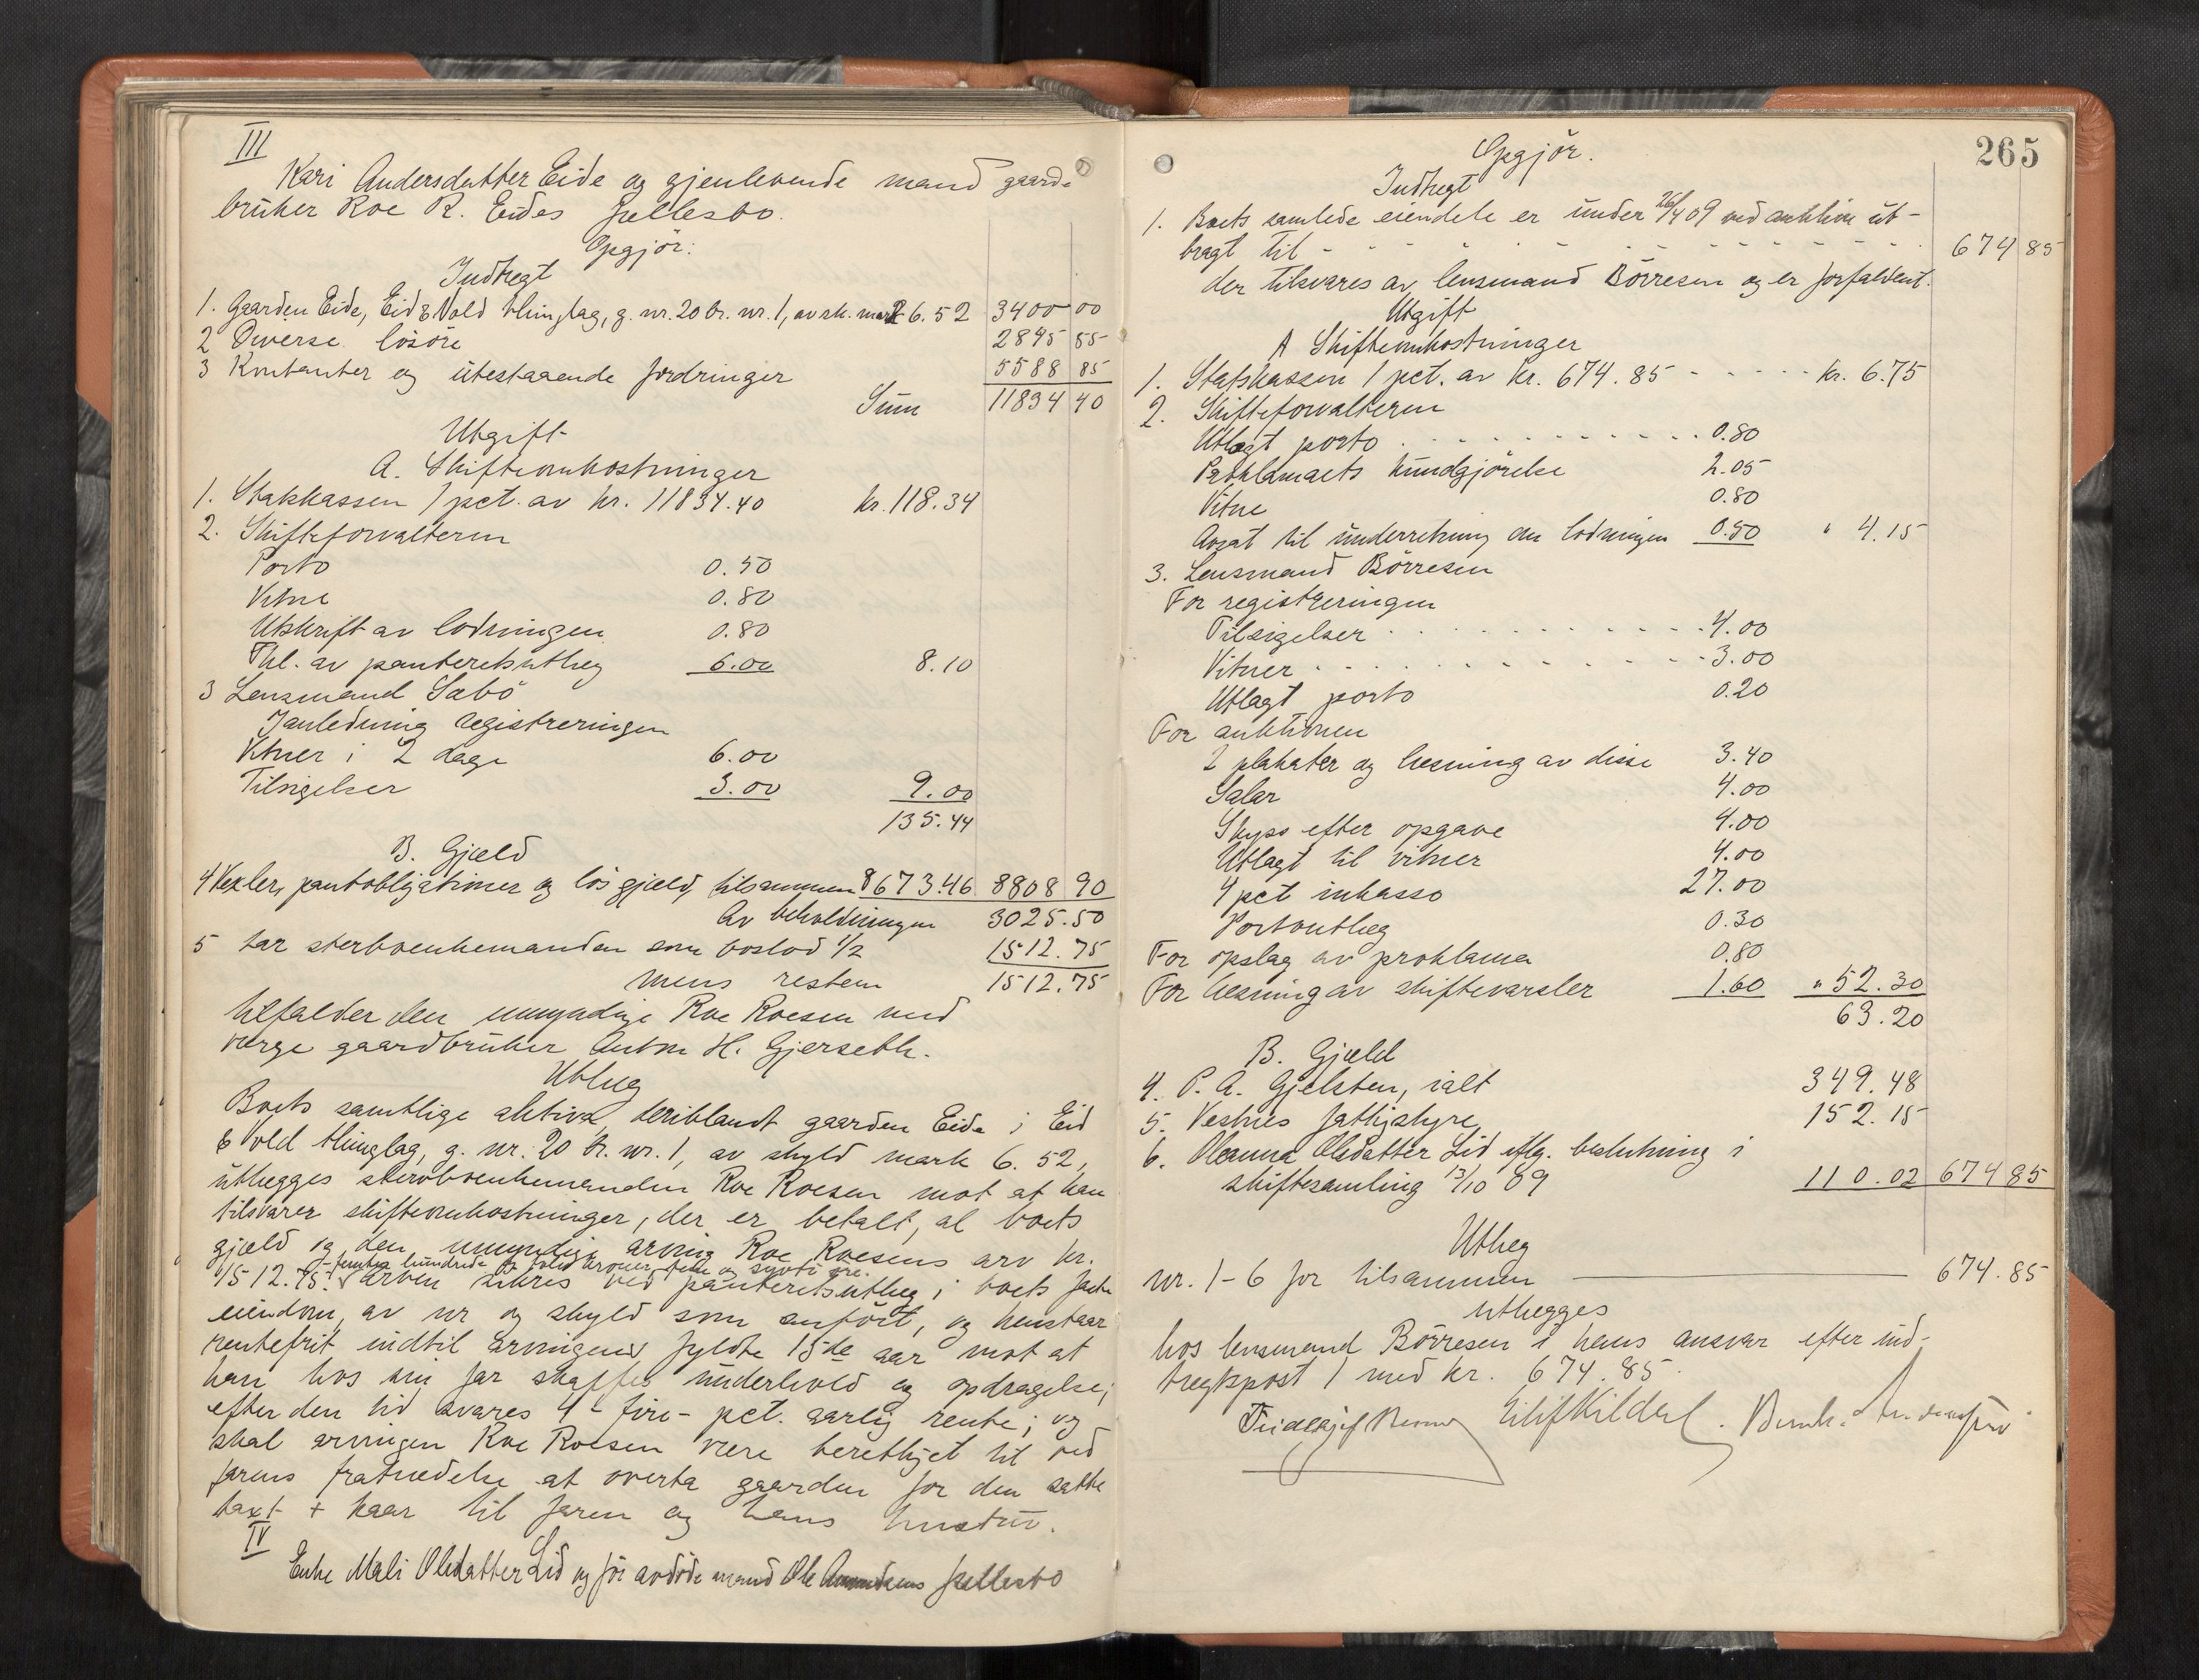 III
Kari Andersdatter Eide og gjenlevende mand gaard-
bruker Roe R. Eides fellesbo.
Opgjör:
Indtægt
1. Gaarden Eide, Eid & Vold thinglag, g. nr. 20 br. nr. 1, av sk. mark 6.52 3400 00
2 Diverse lösöre 2845 55
3 Kontanter og utestaaende fordringer 5588 85
Sum 11834 40
Utgift
A. Skifteomkostninger
1. Statskassen 1 pct. av kr. 11834.40 kr. 118.34
2. Skifteforvalteren
Porto 0.50
Vitne 0.80
Utskrift av lodningen 0.80
Thl. av panteretsutlæg 6.00 8.10
3 Lensmand Sæbö
I anledning registreringen
Vitner i 2 dage 6.00
Tilsigelser 3.00 9.00
135.44
B. Gjæld
4 Vexler, pantobligationer og lös gjæld, tilsammen 8673.46 8808 90
Av beholdningen 3025.50
5 tar sterboenkemanden som boslod 1/2 1512.75
mens resten 1512.75
tilfalder den umyndige Roe Roesen med
verge gaardbruker Anton H. Gjerseth.
Utlæg
Boets samtlige aktiva, deriblandt gaarden Eide i Eid
& Vold thinglag, g. nr. 20 br. nr. 1, av skyld mark 6.52,
utlægges sterboenkemanden Roe Roesen mot at han
tilsvarer skifteomkostninger, der er betalt, al boets
gjæld og den umyndige arving Roe Roesens arv kr.
- femten hundrede og tolv kroner, fem og sytti öre.
1512.75. Arven sikres ved panteretsutlæg i boets faste
eiendom, av nr og skyld som anfört, og henstaar
rentefrit indtil arvingens fyldte 15de aar mot at
han hos sin far skaffes underhold og opdragelse;
efter den tid svares 4 - fire - pct. aarlig rente; og
skal arvingen Roe Roesen være berettiget til ved
farens fratrædelse at overta gaarden for den satte
taxt + kaar til faren og hans hustru.
IV
Enke Mali Olsdatter Lid og för avdöde mand Ole Amundsens fellesbo
265
Opgjör.
Indtægt
1. Boets samlede eiendele er under 26/4 09 ved auktion ut-
bragt til 674 85
der tilsvares av lensmand Börresen og er forfaldent.
Utgift
A Skifteomkostninger
1. Statskassen 1 pct. av kr. 674.85 kr. 6.75
2. Skifteforvalteren
Utlagt porto 0.80
Proklamaets kundgjörelse 2.05
Vitne 0.80
Avsat til underretning om lodningen 0.50 " 4.15
3. Lensmand Börresen
For registreringen
Tilsigelser 4.00
Vitner 3.00
Utlagt porto 0.20
For auktionen
2 plakater og læsning av disse 3.40
Salær 4.00
Skyss efter opgave 4.00
Utlagt til vitner 4.00
4 pct inkasso 27.00
Portoutlæg 0.30
For opslag av proklama 0.80
For læsning av skiftevarsler 1.60 " 52.30
63.20
B. Gjæld
4. P. A. Gjelsten, ialt 349.48
5. Vestnes fattigstyre 152.15
6. Oleanna Olsdatter Lid eflg. beslutning i
skiftesamling 13/10 09 110.02 674 85
Utlæg
nr. 1-6 for tilsammen 674.85
utlægges
hos lensmand Börresen i hans ansvar efter ind-
tægtspost 1 med kr. 674.85.